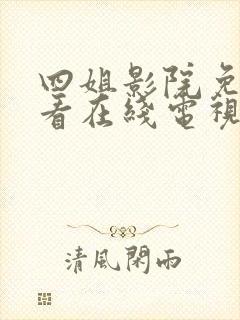 四姐影院免
看在綫電視
清風閑雨